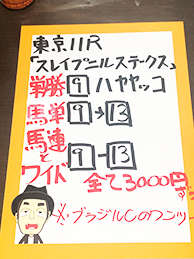 東京11R
「スレイプニルステークス」
単勝 9 ハヤヤッコ
馬単 9→13
馬連
と
ワイド 9-13
全て3000円ずつ
ブラジルCのワンツー